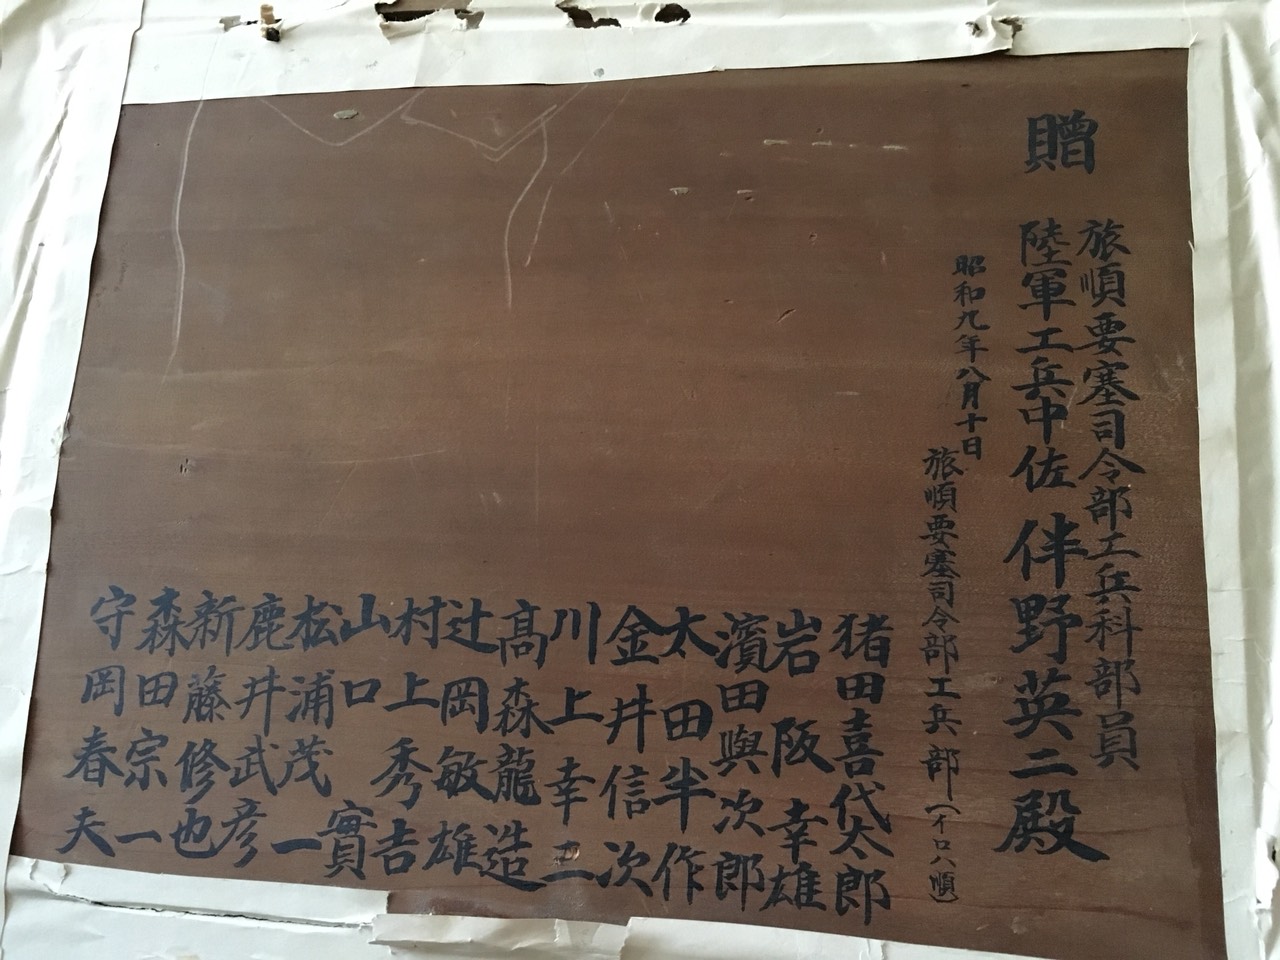 贈
旅順要塞司令部工兵科部員
陸軍工兵中佐 伴野英二殿
昭和九年八月十日
旅順要塞司令部工兵部（イロハ順）
猪田喜代太郎
岩阪幸雄
濱田與次郎
太田半作
金井信次
川上幸三
高森龍造
辻岡敏雄
村上秀吉
山口實
松浦茂一
鹿井武彦
新藤修也
森田宗一
守岡春夫